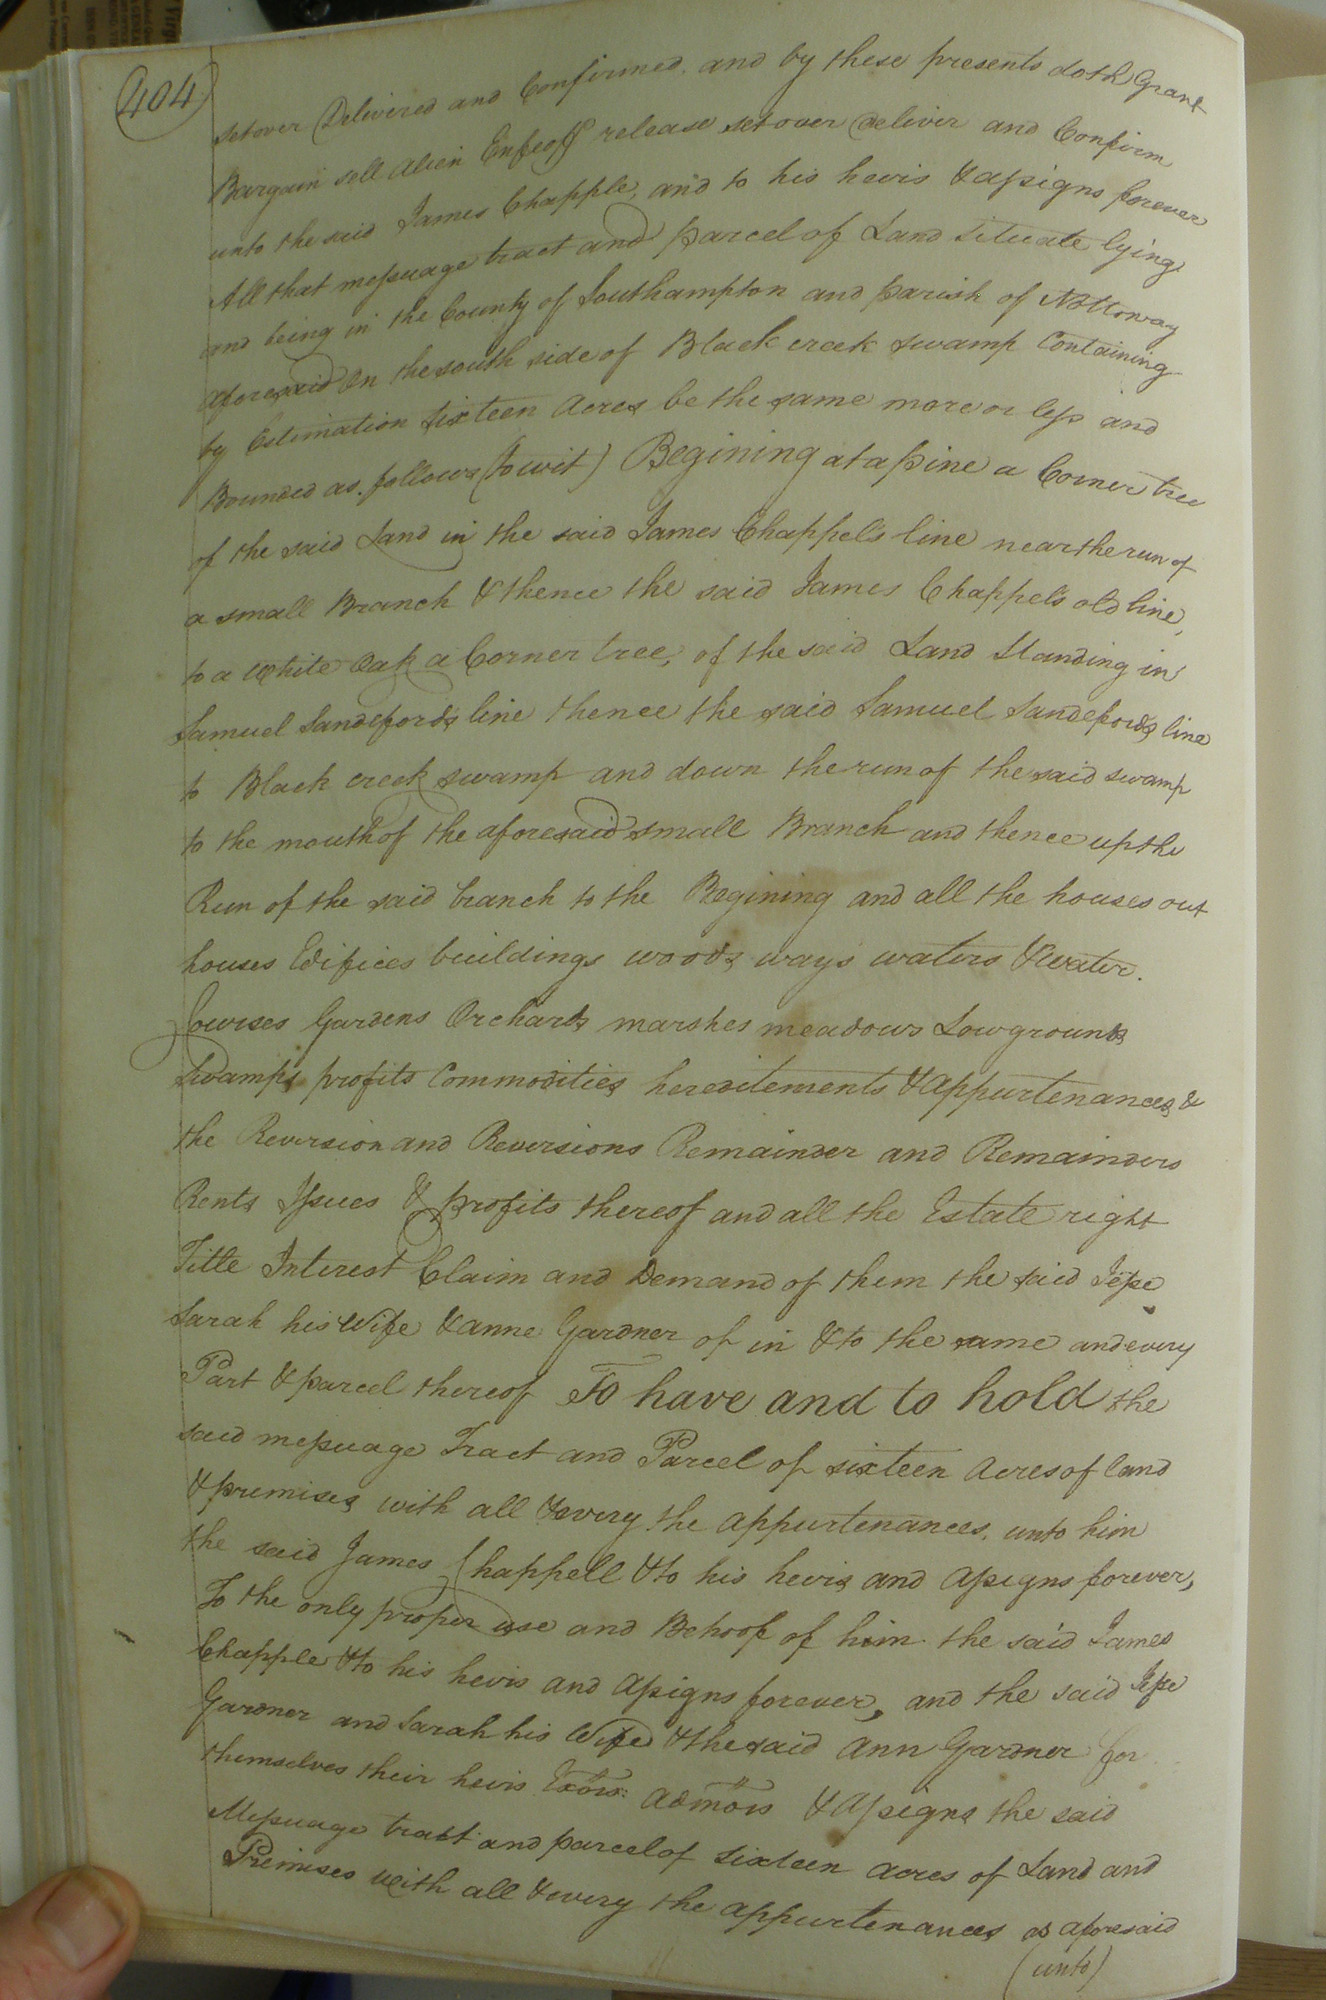 404
setover Delivered and Confirmed. and by these presents doth Grant
Bargain sell alien Enfeoff release setover deliver and Confirm
unto the said James Chapple, and to his heirs & assigns forever
All that messuage tract and parcel of Land situate lying
and being in the County of Southampton and parish of Nottoway
aforesaid on the south side of Black creek swamp Containing
by Estimation sixteen Acres be the same more or less and
Bounded as follows (to wit) Begining at a pine a Corner tree
of the said Land in the said James Chappel's line near the run of
a small Branch & thence the said James Chappel's old line,
to a White Oak a Corner tree, of the said Land Standing in
Samuel Sandefords line thence the said Samuel Sandefords line
to Black creek swamp and down the run of the said swamp
to the mouth of the aforesaid small Branch and thence up the
Run of the said branch to the Begining and all the houses out
houses Edifices buildings woods ways waters & water.
Courses Gardens Orchards marshes meadows Lowgrounds
Swamps profits Commodities hereditements & appurtenances &
the Reversion and Reversions Remainder and Remainders
Rents Issues & profits thereof and all the Estate right
Title Interest Claim and Demand of them the said Jesse
Sarah his Wife & anne Gardner of in & to the same and every
Part & parcel thereof To have and to hold the
said messuage Tract and Parcel of sixteen Acres of land
& premises with all & every the appurtenances. unto him
the said James Chappell & to his heirs and assigns forever,
To the only proper use and Behoof of him the said James
Chapple & to his heirs and assigns forever, and the said Jesse
Gardner and Sarah his Wife & the said Ann Gardner for
themselves their heirs Exors: admors & assigns the said
Messuage tract and parcel of sixteen acres of Land and
Premises with all & every the appurtenances as aforesaid
(unto)